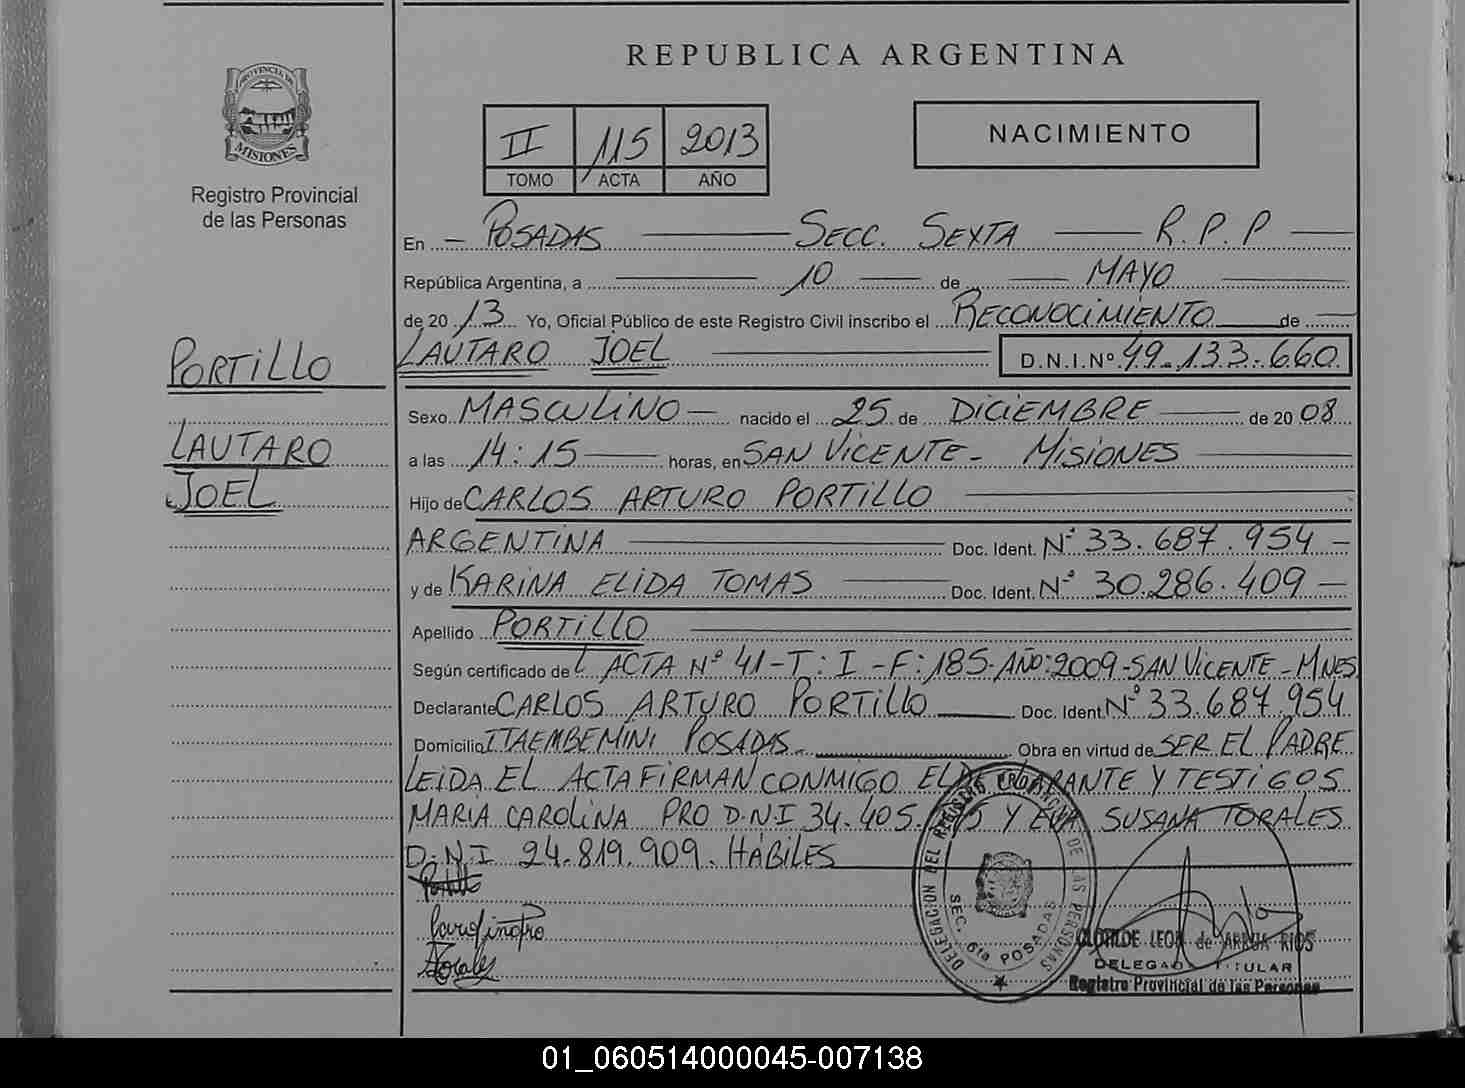 REPUBLICA ARGENTINA
PROVINCIA DE
MISIONES
Registro Provincial
de las Personas
II 115 2013
TOMO ACTA AÑO
NACIMIENTO
En — POSADAS — SECC. SEXTA — R.P.P —
República Argentina, a — 10 — de — MAYO —
de 2013 Yo, Oficial Público de este Registro Civil inscribo el RECONOCIMIENTO de —
LAUTARO JOEL — D.N.I.Nº 49.133.660
PORTILLO
LAUTARO
JOEL
Sexo MASCULINO — nacido el 25 de DICIEMBRE — de 2008
a las 14:15 — horas, en SAN VICENTE - MISIONES —
Hijo de CARLOS ARTURO PORTILLO —
ARGENTINA — Doc. Ident. Nº 33.687.954 —
y de KARINA ELIDA TOMAS — Doc. Ident. Nº 30.286.409 —
Apellido PORTILLO —
Según certificado del ACTA Nº 41-T:I-F:185-AÑO:2009-SAN VICENTE-MNES
Declarante CARLOS ARTURO PORTILLO — Doc. Ident. Nº 33.687.954
Domicilio ITAEMBEMINI POSADAS — Obra en virtud de SER EL PADRE
LEIDA EL ACTA FIRMAN CONMIGO EL DECLARANTE Y TESTIGOS
MARIA CAROLINA PRO D.N.I 34.405. Y EVA SUSANA TORALES
D.N.I 24.819.909. HÁBILES
Portillo
Carolina Pro
Torales
DELEGACION DEL REGISTRO PROVINCIAL DE LAS PERSONAS
SEC. 6ta POSADAS
CLOTILDE LEON de ARRUA RIOS
DELEGADO TITULAR
Registro Provincial de las Personas
01_060514000045-007138